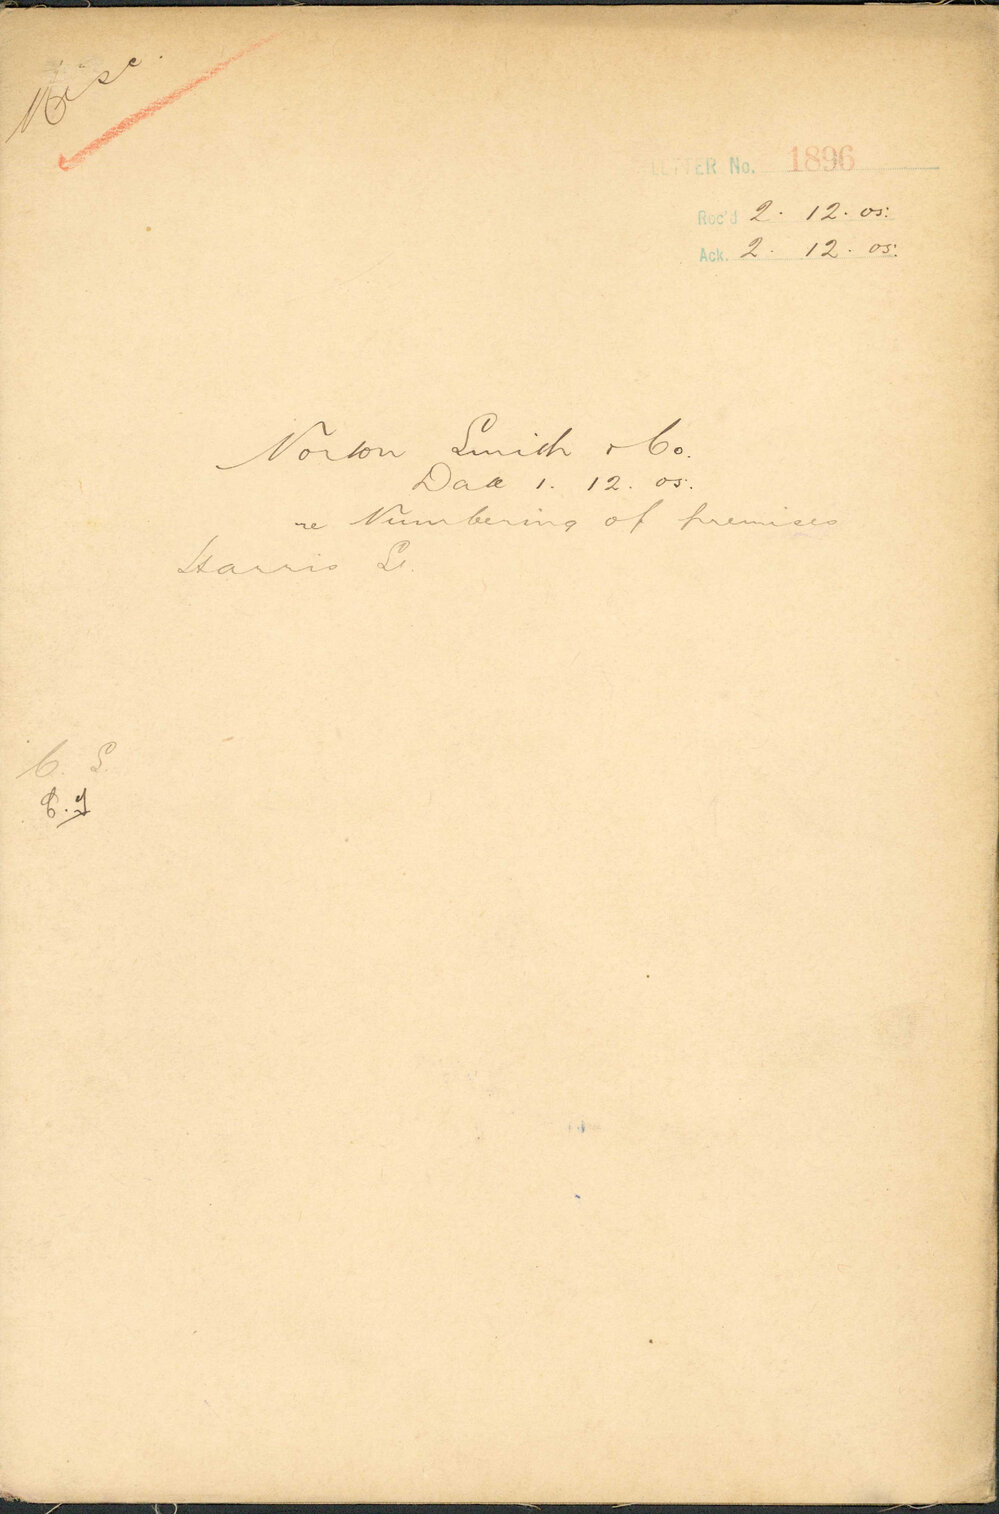 Misc.
LETTER No. 1896
Rec'd 2. 12. 05.
Ack. 2. 12. 05.
Norton Smith & Co.
Date 1. 12. 05.
re Numbering of premises
Harris St.
C. S.